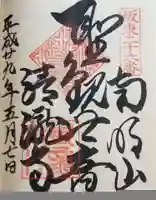 坂東二十二番
南明山
聖観世音
清瀧寺
平成廿九年五月七日